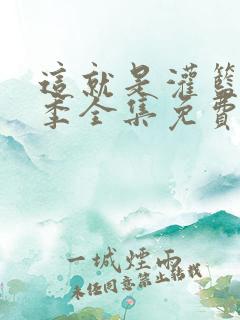 這就是灌籃
季全集免費
一城煙雨
未經同意禁止轉載